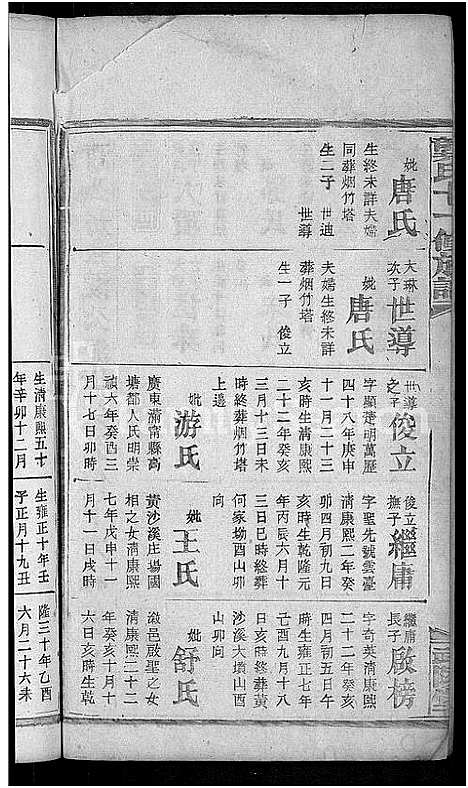 妣唐氏
生終未詳夫婦
同葬烟竹塔
生二子 世迪
世導
大琳次子世導
妣唐氏
夫婦生終未詳
葬烟竹塔
生一子 俊立
世導之子俊立
字顯楚明萬歷
四十八年庚申
十一月二十三
亥時生清康熙
二十二年癸亥
三月十三日未
時終葬烟竹塔
上邊
妣游氏
廣東蒲甯縣高
塘都人氏明崇
禎六年癸酉三
月十七日卯時
俊立撫子繼庸
字聖先號雲臺
清康熙二年癸
卯四月初九日
亥時生乾隆元
年丙辰六月十
三日巳時終葬
何家坳酉山卯
向
妣王氏
黃沙溪庄塲國
相之女清康熙
七年戊申十一
月十一日戌時
繼庸長子啟榜
字奇英清康熙
二十二年癸亥
四月初五日午
時生雍正七年
己酉九月十八
日亥時終葬黃
沙溪大塅山酉
山卯向
妣舒氏
漵邑啟聖之女
清康熙二十二
年癸亥十月十
六日亥時生乾
生清康熙五十
年辛卯十二月
生雍正十年壬
子正月十九丑
隆三十年乙酉
六月二十六未